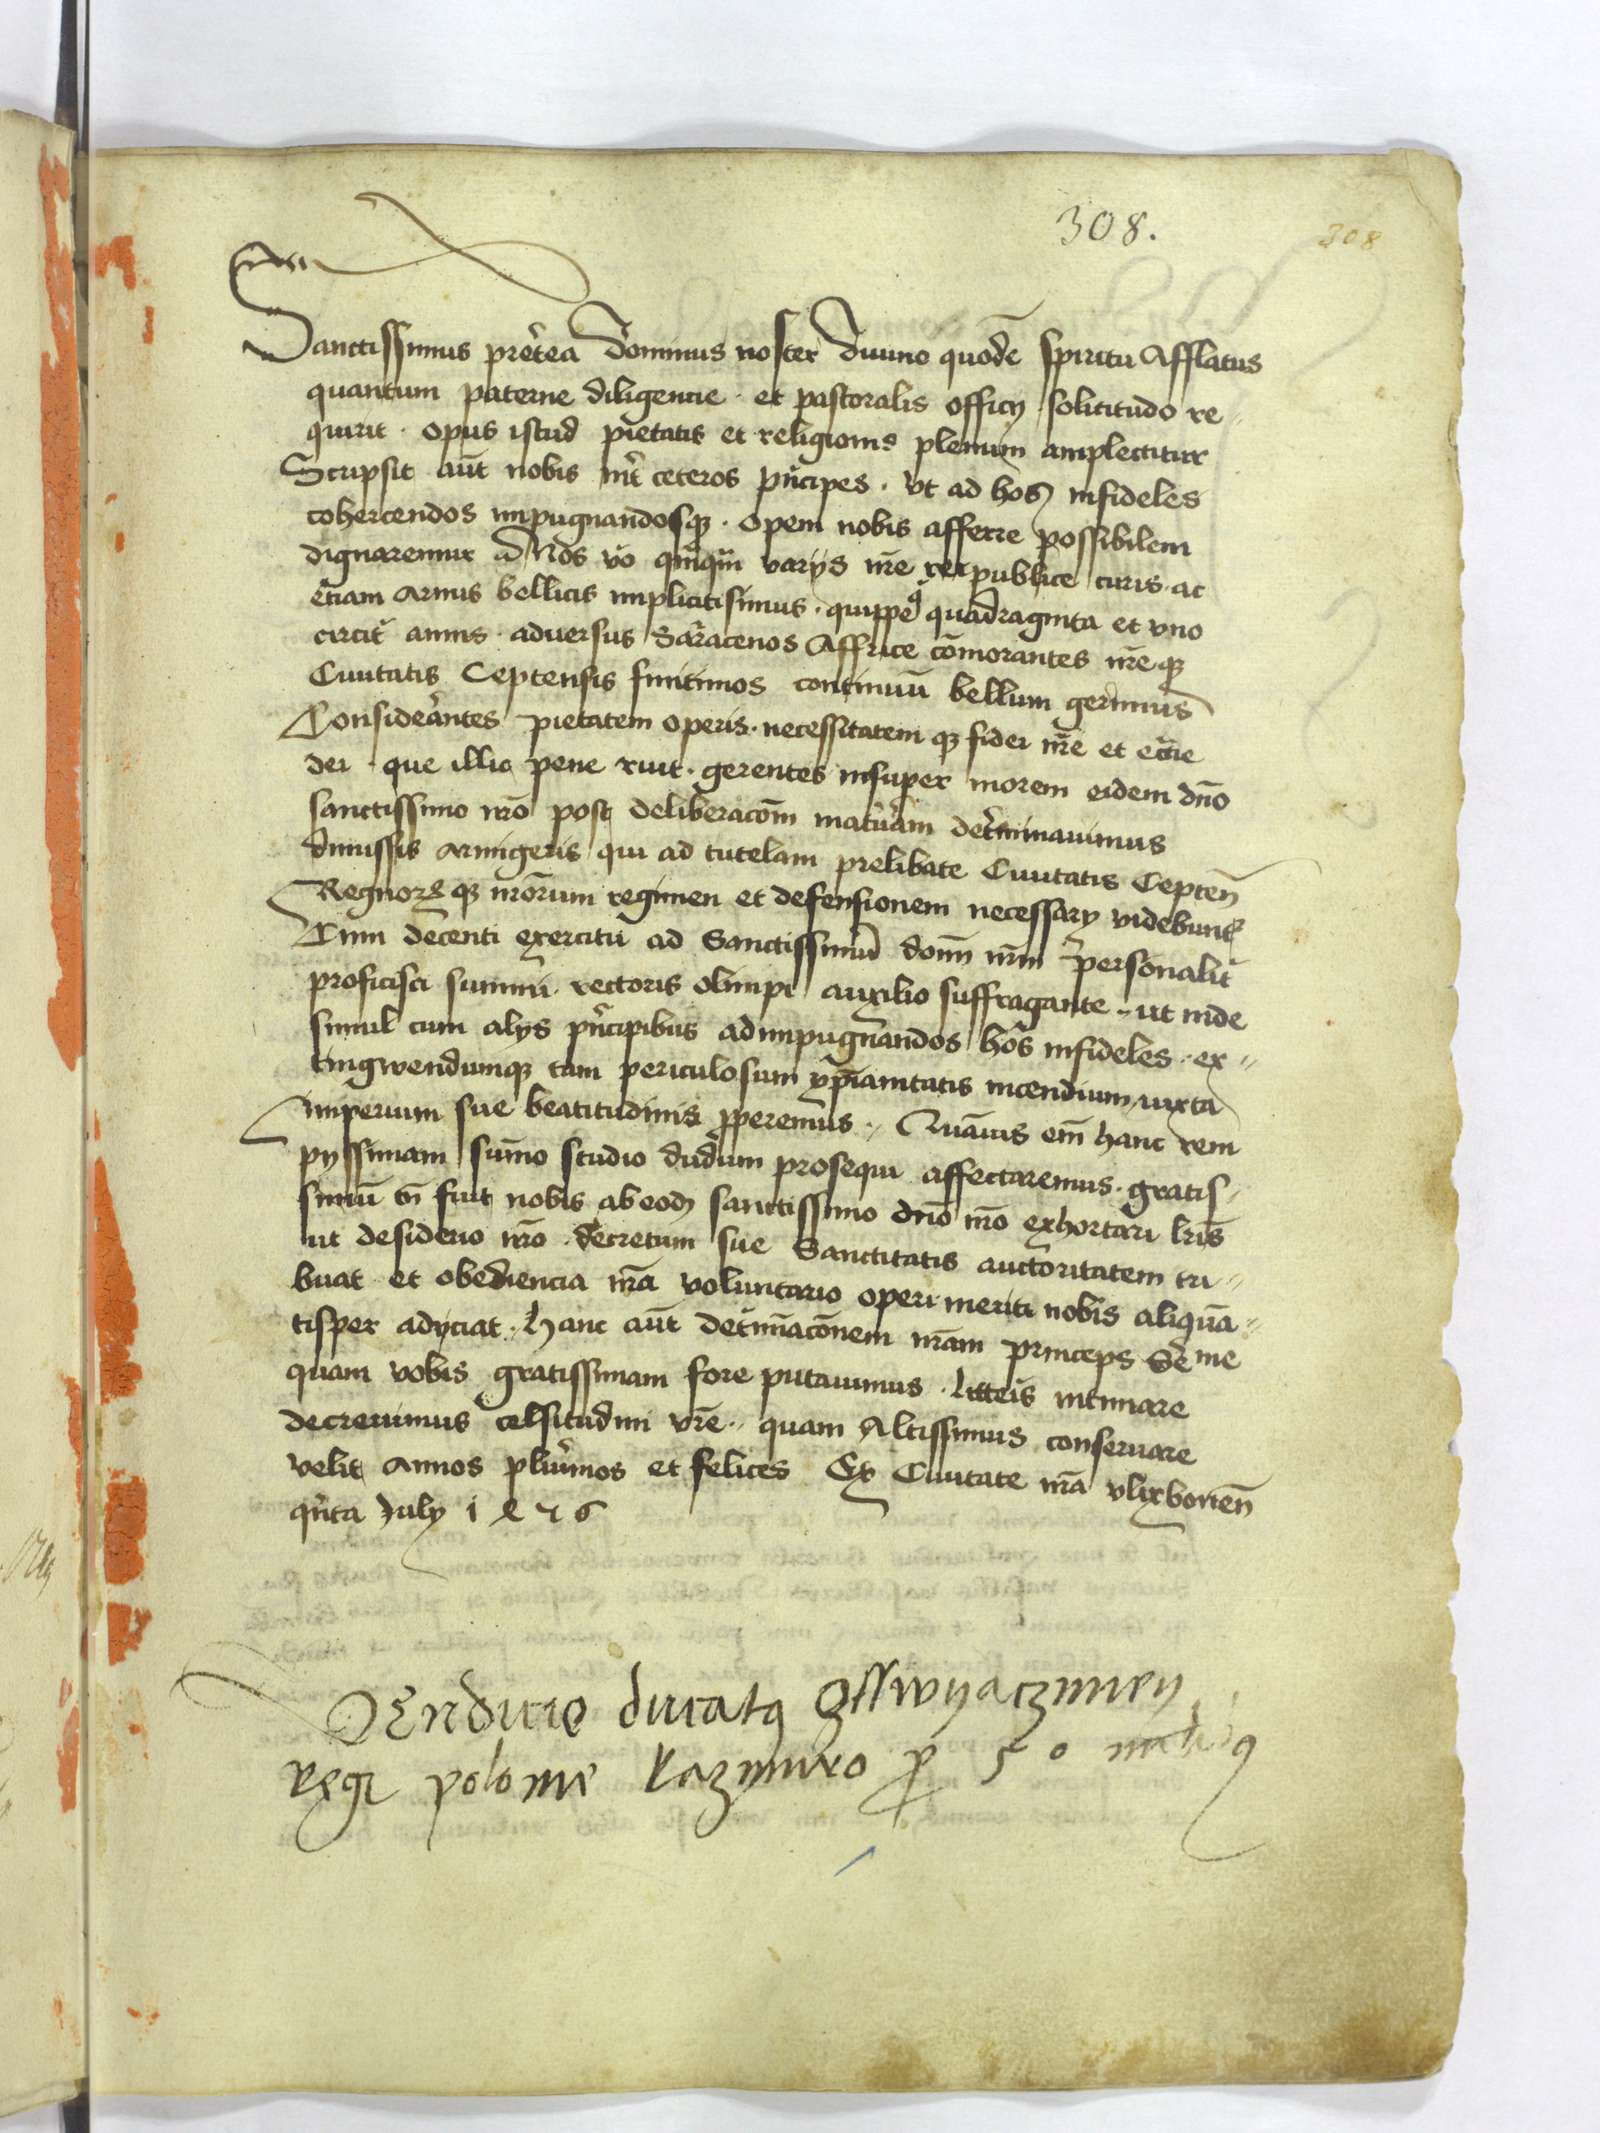 308.
308
Sanctissimus pret̃ea dominus noster diuino quodẽ spiritu Afflatus
quantum paterne diligencie · et pastoralis officÿ · solicitudo re
quirit · opus istud pietatis et religionis plenum amplectitur
Scripsit aũt nobis int̃ ceteros pn̾cipes · vt ad hos infideles
cohercendos impugnandosqʒ · opem nobis afferre possibilem
dignaremur Nos ṽo qũqũ varÿs nr̃e rei publice curis · ac
etiam armis bellicis impliciti simus · quippe quadraginta et vno
circit̾ annis · aduersus Sarracenos Affrice cõmorantes nr̃e qʒ
Ciuitatis Ceptensis finitimos continuũ bellum gerimus
Considerantes pietatem operis · necessitatem qʒ fidei nr̃e et eccĩe
dei · que illic pene ruit · gerentes insuper morem eidem dño
sanctissimo nr̃o post deliberacõm maturam det̾minauimus
dimissis armigeris qui ad tutelam prelibate Ciuitatis Cepteñ
Regnorꝫ qʒ nr̃orum regimen et defensionem necessarÿ videbunt᷑
Cum decenti exercitu ad Sanctissimũ dom̃ nr̃m personalit̾
proficisci summi · rectoris olimpi auxilio suffragante · ut inde
simul cum alÿs pn̾cipibus ad impugnandos hos infideles · ex
tingwendumqʒ tam periculosum xp̃ianitatis incendium iuxta
imperium sue beatitudinis ꝓperemus · Quãuis em̃ hanc rem
pÿssimam sum̃o studio dudum prosequi affectaremus · gratis
simũ tñ fuit nobis ab eodʒ sanctissimo dño nr̃o exhortari lr̃is
ut desiderio nr̃o · decretum sue Sanctitatis auctoritatem tri
buat et obediencia nr̃a voluntario operi meriti nobis aliquã
tisper adÿciat · Hanc aũt det̾minacõnem nr̃am princeps Sẽme
quam vobis gratissimam fore putauimus · litteris intimare
decreuimus celsitudini vr̃e · quam Altissimus conseruare
velit annos plurimos et felices Ex Ciuitate nr̃a vlixboneñ
qn̾ta July
Vendicie ducatꝰ
regi polonie kazymiro ꝓ 50